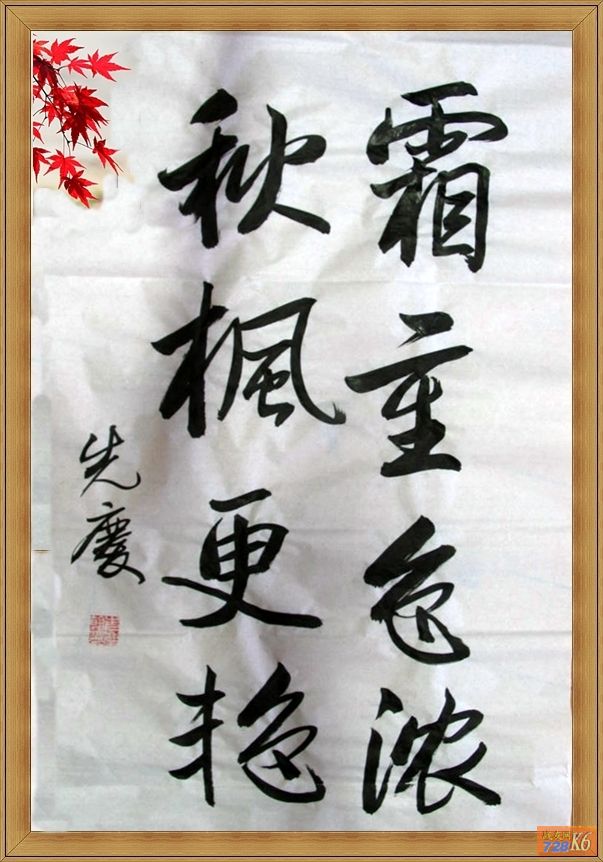 霜重色浓
秋楓更艳
先慶
728K6